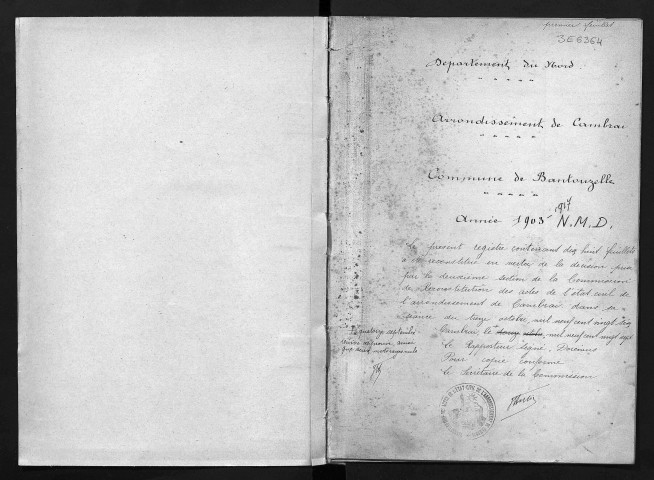 premier feuillet
3E6364
Département du Nord
Arrondissement de Cambrai
Commune de Bantouzelle
Année 1903 N.M.D.
Le présent registre contenant dix huit feuillets
a été reconstitué en vertu de la décision prise
par la deuxième section de la Commission
de Reconstitution des actes de l'état civil de
l'arrondissement de Cambrai dans sa
séance du treize octobre mil neuf cent vingt
Cambrai, le mil neuf cent vingt sept
le Rapporteur signé, Doremus
Pour copie conforme
le Secrétaire de la Commission
quatorze septembre